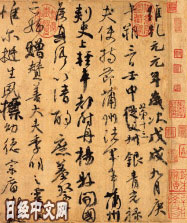 維乾元元年歲次戊戌九月庚
午朔三日壬申第十三叔銀青光祿
夫使持節蒲州諸軍事蒲州
刺史上輕車都尉丹楊縣開國
侯真卿以清酌庶羞祭于
亡姪贈贊善大夫季明之
惟爾挺生夙標幼德宗廟
日经中文网